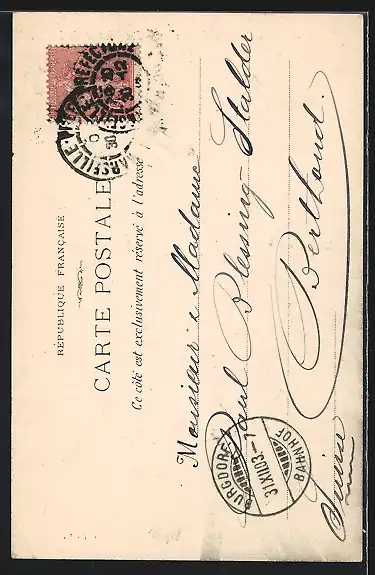 RÉPUBLIQUE FRANÇAISE
CARTE POSTALE
Ce côté est exclusivement réservé à l'adresse
MARSEILLE
Monsieur & Madame
Paul Blessing-Stalder
Berthoud.
Suisse
BURGDORF
31.XII.03.-1
BAHNHOF